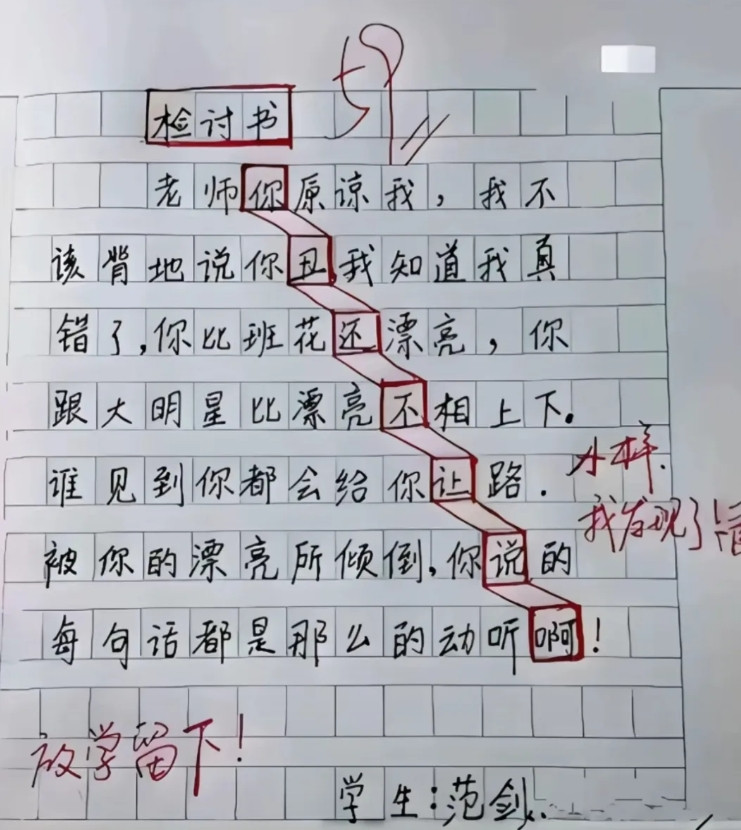 检讨书
老师你原谅我，我不
该背地说你丑我知道我真
错了,你比班花还漂亮，你
跟大明星比漂亮不相上下。
谁见到你都会给你让路.
小样.
我发现了
被你的漂亮所倾倒,你说的
每句话都是那么的动听啊!
放学留下!
学生:范剑